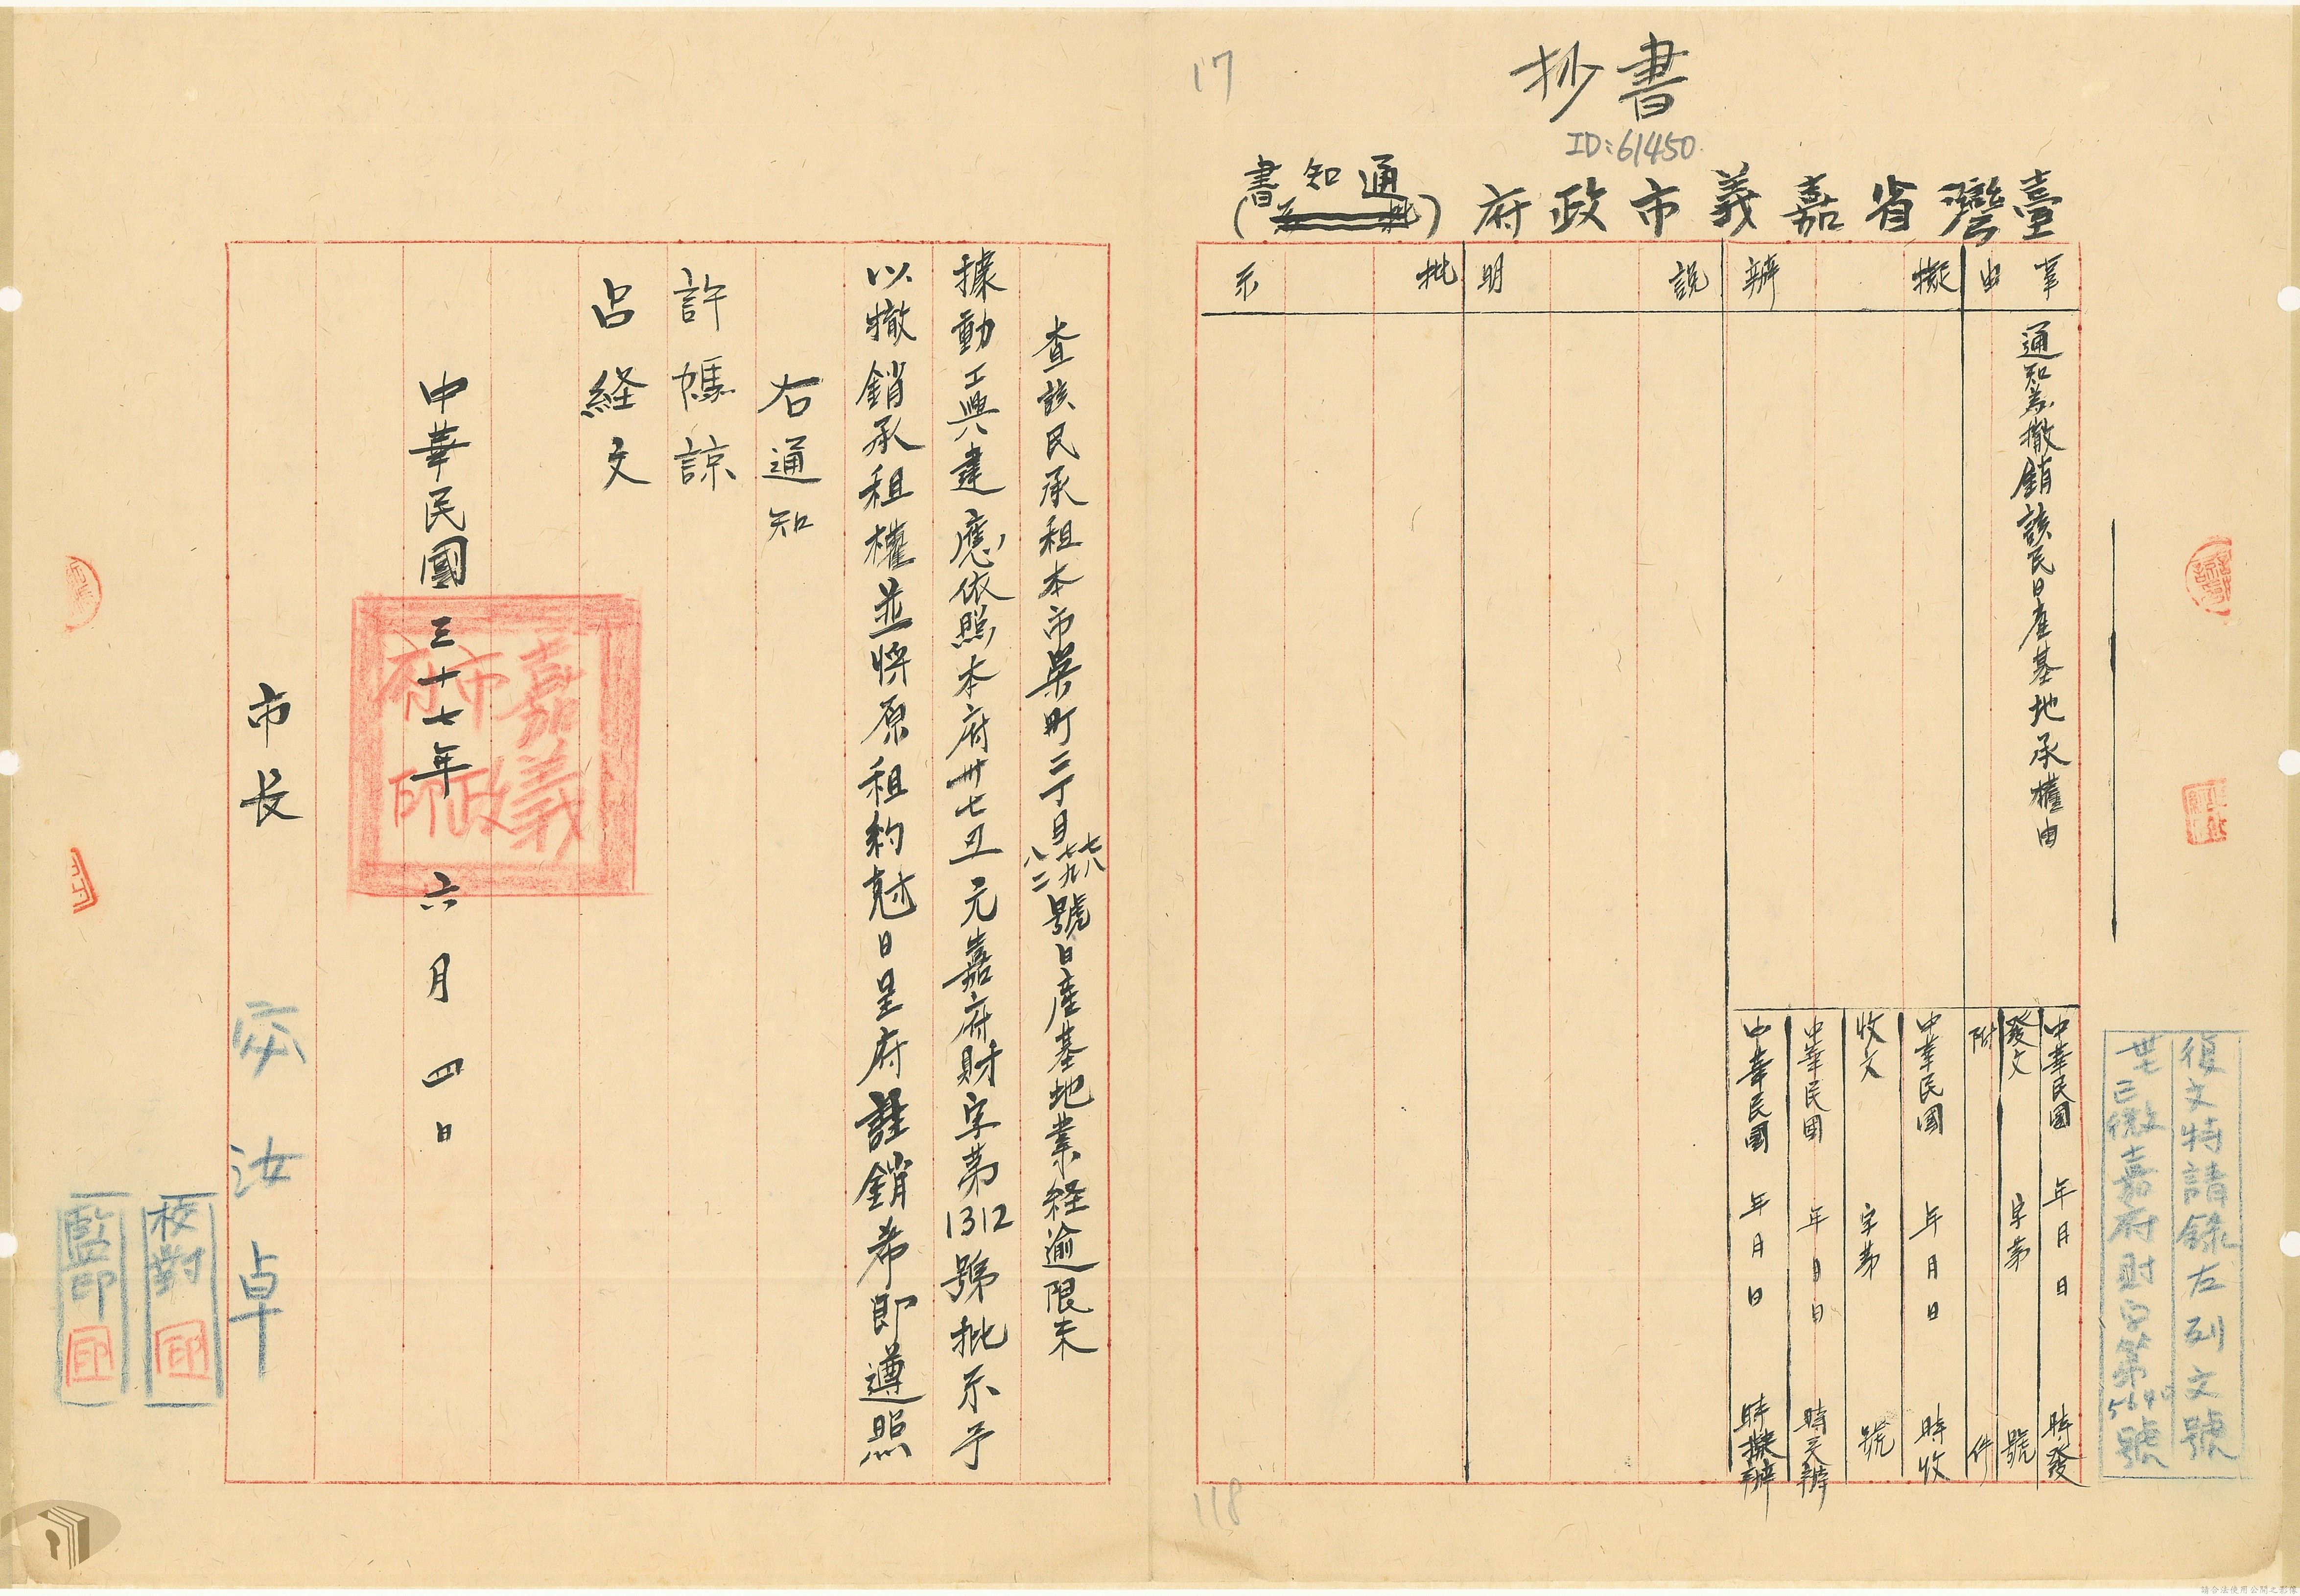 抄書
ID:61450
17
臺灣省嘉義市政府(通知書)
事由
擬辦
說明
批示
通知為撤銷該民日產基地承權由
中華民國 年 月 日 時發
發文 字第 號
附 件
中華民國 年 月 日 時收
收文 字第 號
中華民國 年 月 日 時交辦
中華民國 年 月 日 時擬辦
復文特請錄左列文號
卅七已微嘉府財字第5640號
查該民承租本市榮町二丁目七八七九八二號日產基地業経逾限未
據動工興建應依照本府卅七丑元嘉府財字第1312號批示予
以撤銷承租權並將原租約尅日呈府註銷希即遵照
右通知
許媽諒
呂経文
中華民國三十七年六月四日
嘉義市政府印
市長 宓汝卓
校對 印
監印 印
118
請合法使用公開之影像